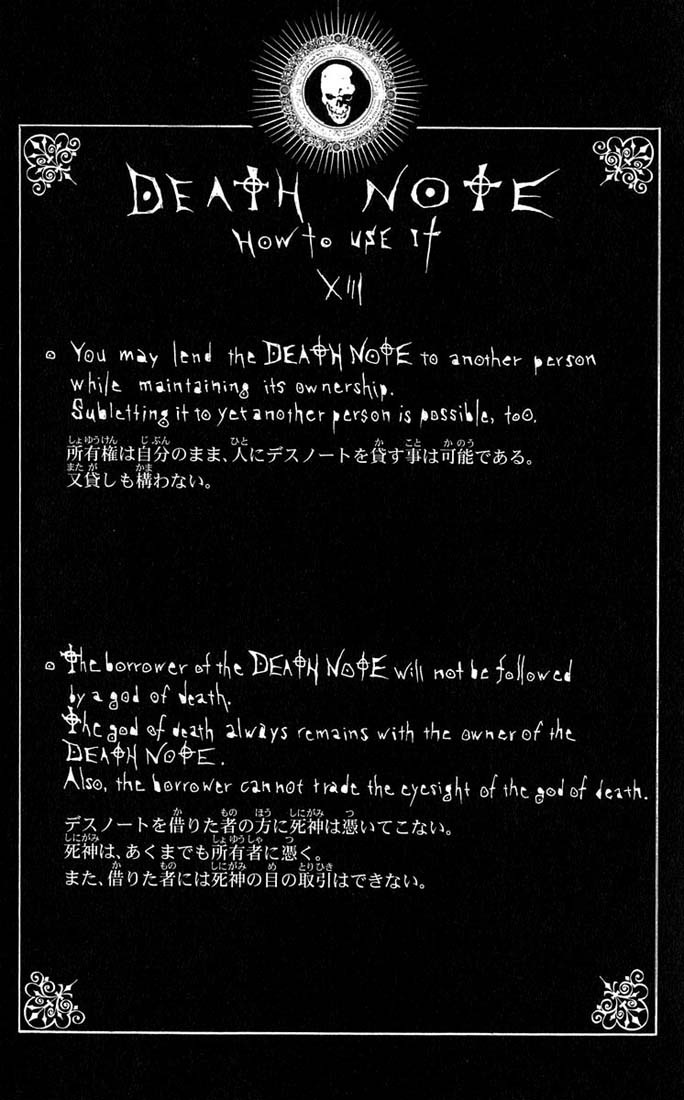 DEATH NOTE
HOW to USE It
XIII
You may lend the DEATH NOTE to another person
while maintaining its ownership.
Subletting it to yet another person is possible, too.
所有権は自分のまま、人にデスノートを貸す事は可能である。
又貸しも構わない。
The borrower of the DEATH NOTE will not be followed
by a god of death.
The god of death always remains with the owner of the
DEATH NOTE.
Also, the borrower cannot trade the eyesight of the god of death.
デスノートを借りた者の方に死神は憑いてこない。
死神は、あくまでも所有者に憑く。
また、借りた者には死神の目の取引はできない。